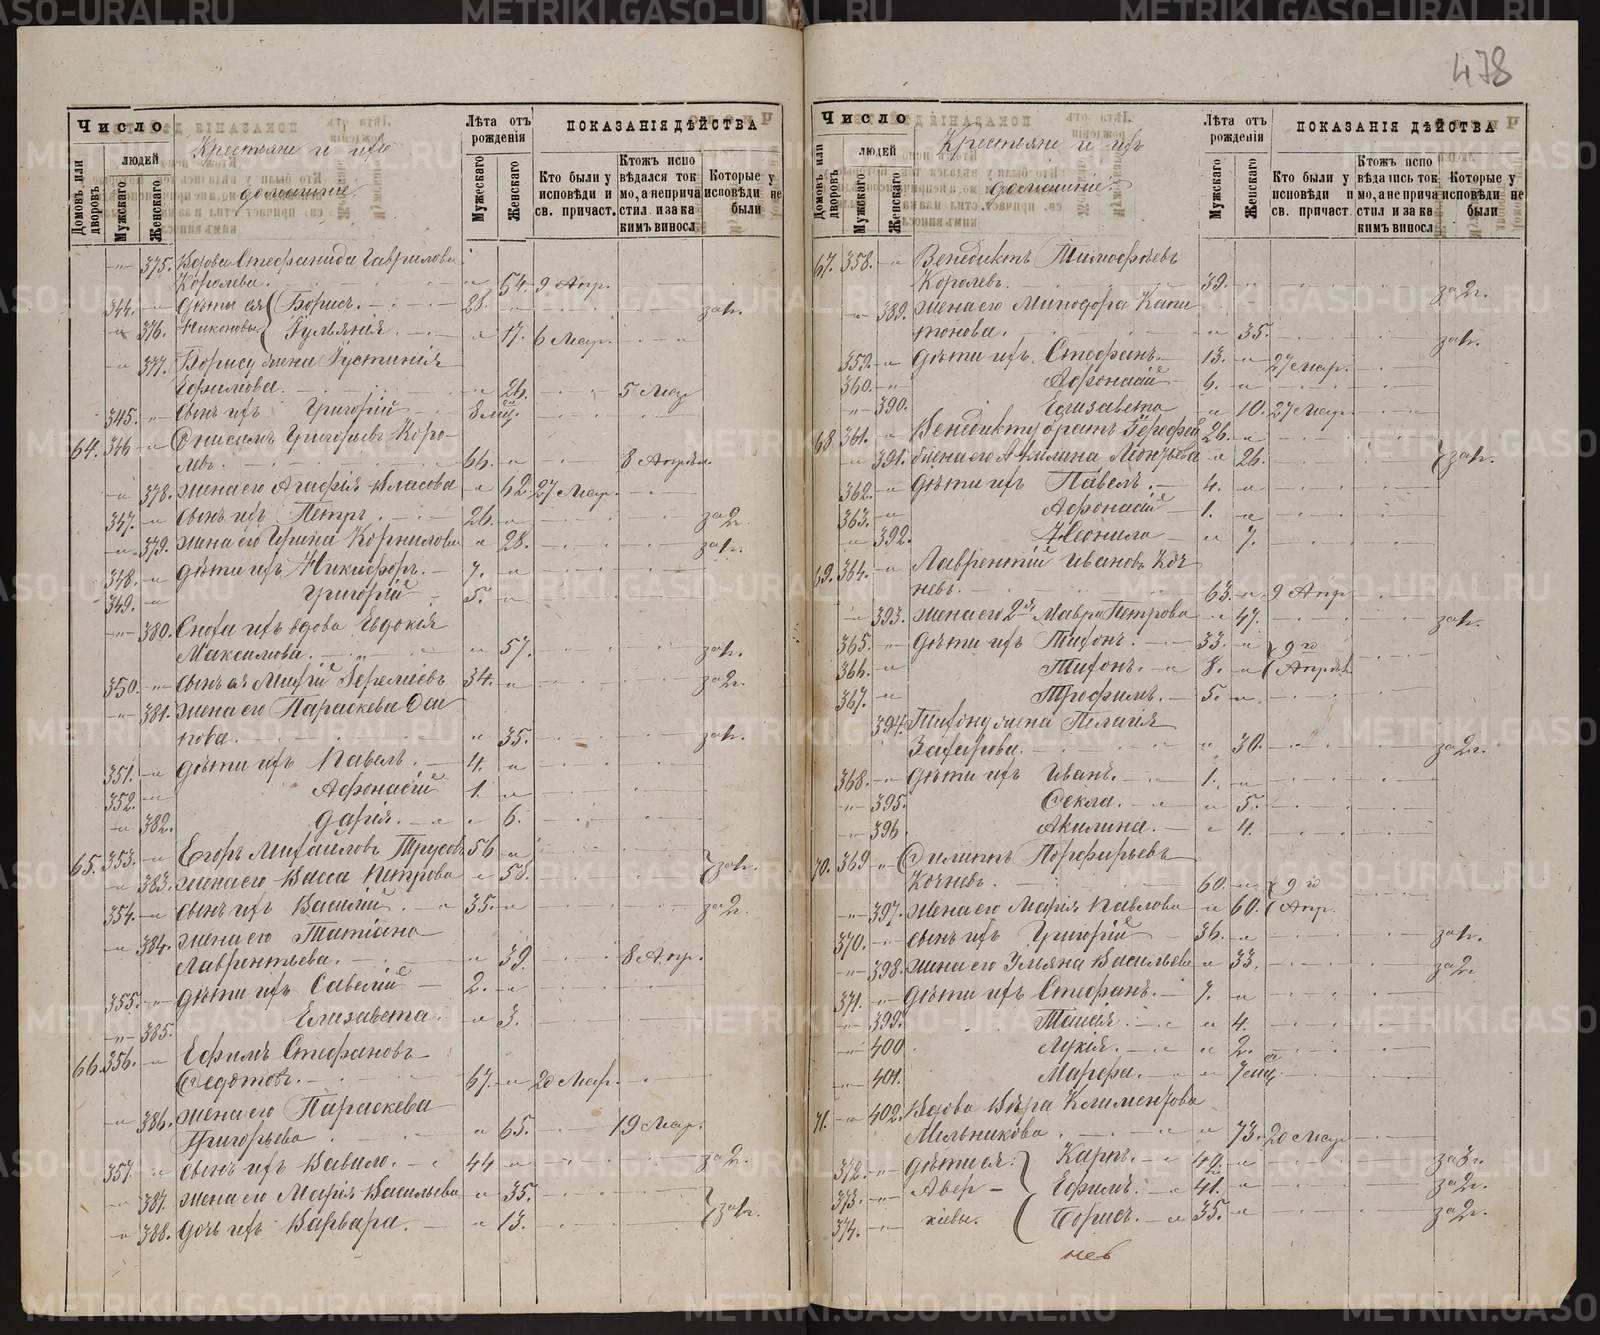 478
Число
Домовъ или дворовъ
людей
Мужскаго
Женскаго
Крестьяне и ихъ
домашніе
Лѣта отъ рожденія
Мужескаго
Женскаго
ПОКАЗАНІЯ ДѢЙСТВА
Кто были у исповѣди и св. причаст.
Ктожъ испо вѣдался ток мо, а неприча стил. и за ка кимъ виносл
Которые у исповѣди не были
375. Вдова Стефанида Гаврилова
Королева. 54. 9 Апр.
344. Дѣти ея Борисъ. 28. за 1г.
376. Никоновы Іуліанія. 17. 6 Мар.
377. Борису жена Іустинія
Ефимова. 26. 5 Мар
345. Сынъ ихъ Григорій 8 мц.
64. 346 Онисимъ Григорьевъ Коро-
левъ. 66. 8 Апрѣл.
378. Жена его Агафія Власова 62. 27 Мар.
347. Сынъ ихъ Петръ. 26. за 2г.
379. Жена его Ирина Корнилова 28. за 1г.
348. Дѣти ихъ Никифоръ. 7.
349. Григорій 5.
380. Сноха ихъ вдова Евдокія
Максимова. 57. за 1г.
350. Сынъ ея 34. за 2г.
381. Жена его Параскева Оси
пова. 35. за 1г.
351. Дѣти ихъ Павелъ. 4.
352. Афонасій 1.
382. Дарія. 6.
65. 353. Егоръ Михайловъ Трусовъ 56
383. Жена его Васса Петрова 58. за 1г.
354. Сынъ ихъ Василій. 35. за 2г.
384. Жена его Татіана
Лаврентьева. 39. 8 Апр.
355. Дѣти ихъ Савелій 2.
385. Елизавета. 3.
66. 356. Ефимъ Стефановъ
Ѳедотовъ. 67. 20 Мар.
386. Жена его Параскева
Григорьева 65. 19 Мар.
357. Сынъ ихъ Вавило. 44 за 2г.
387. Жена его Марія Васильева 35.
388. Дочь ихъ Варвара. 13. за 1г.
Число
Домовъ или дворовъ
людей
Мужскаго
Женскаго
Крестьяне и ихъ
домашніе
Лѣта отъ рожденія
Мужескаго
Женскаго
ПОКАЗАНІЯ ДѢЙСТВА
Кто были у исповѣди и св. причаст
Ктожъ испо вѣдался ток мо, а не прича стил и за ка кимъ виносл
Которые у исповѣди не были
67. 358. Венедиктъ Тимофѣевъ
Королевъ. 39. за 2г.
389. Жена его Минодора Капи
тонова. 35. за 1г.
359. Дѣти ихъ Стефанъ. 13. 27 Мар.
360. Афонасій 6.
390. Елизавета 10. 27 Мар.
68. 361. Венедикту братъ 26.
391. Жена его Акилина Леонтьева 26. за 1г.
362. Дѣти ихъ Павелъ. 4.
363. Афонасій 1.
392. Неонила 7.
69. 364. Лаврентій Ивановъ Коч
невъ. 63. 9 Апр
393. Жена его 2я Мавра Петрова 47. за 1г.
365. Дѣти ихъ Тихонъ. 33. 9го
366. Тихонъ. 8. Апрѣля
367. Трофимъ. 5.
394. Тихону жена Пелагія
Захарова. 30. за 2г.
368. Дѣти ихъ Иванъ. 1.
395. Ѳекла. 5.
396 Акилина. 4.
70. 369 Филиппъ Порфирьевъ
Кочневъ. 60. 9го
397. Жена его Марія Павлова 60. Апр.
370. Сынъ ихъ Григорій 36. за 1г.
398. Жена его Ульяна Васильева 33. за 2г.
371. Дѣти ихъ Стефанъ. 7.
399. Таисія. 4.
400 Лукія. 2.
401. Марфа. 7 мц.
71. 402. Вдова Вѣра Климентова
Мельникова. 73. 20 Мар
372. Дѣти ея: Карпъ. 42. за 3г.
373. Авер- Ефимъ. 41. за 2г.
374. кіевы. Борисъ. 35. за 2г.
METRIKI.GASO-URAL.RU